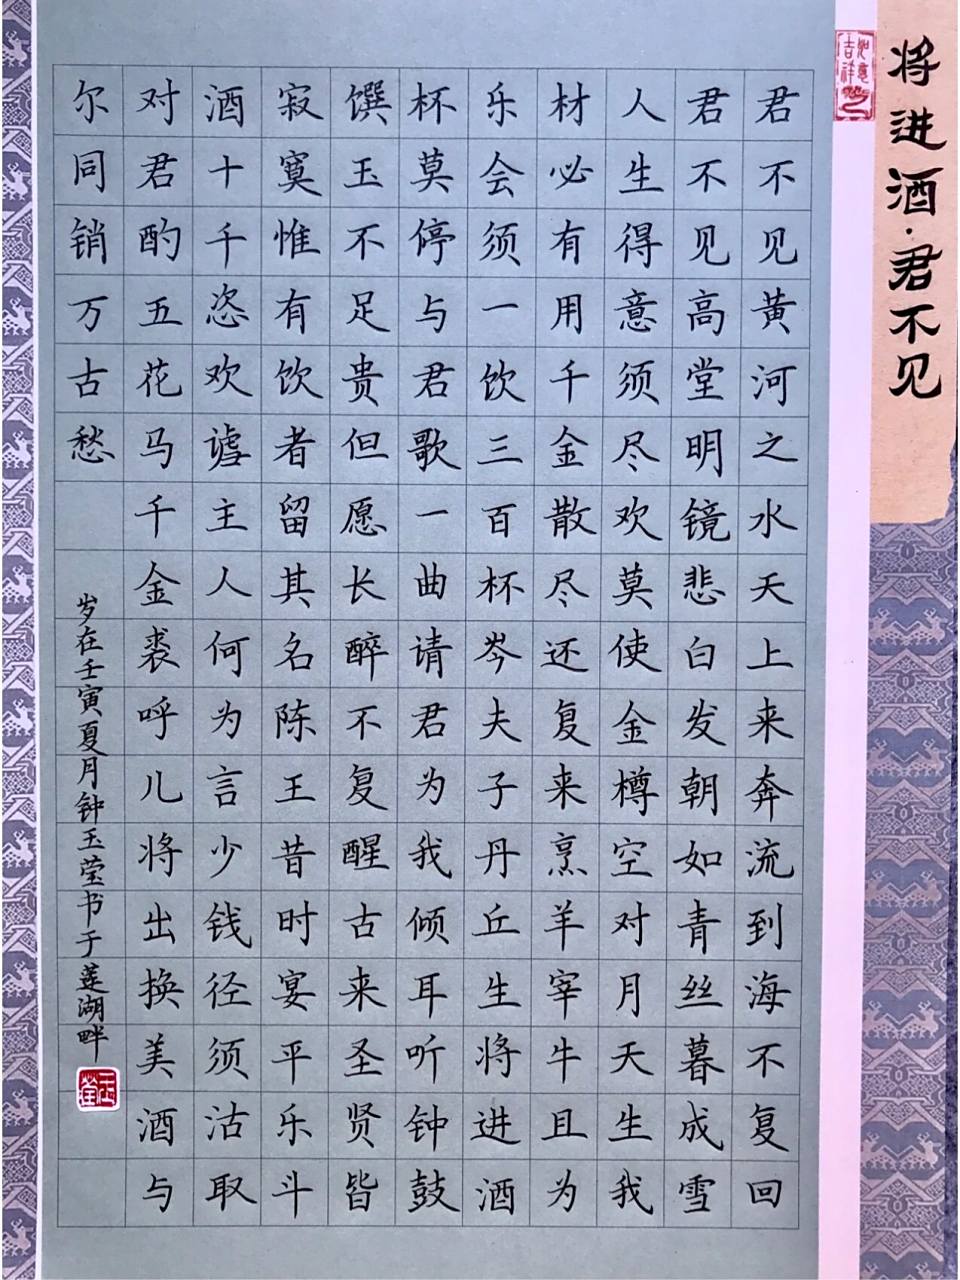 将进酒·君不见
如意吉祥
君不见黄河之水天上来奔流到海不复回
君不见高堂明镜悲白发朝如青丝暮成雪
人生得意须尽欢莫使金樽空对月天生我
材必有用千金散尽还复来烹羊宰牛且为
乐会须一饮三百杯岑夫子丹丘生将进酒
杯莫停与君歌一曲请君为我倾耳听钟鼓
馔玉不足贵但愿长醉不复醒古来圣贤皆
寂寞惟有饮者留其名陈王昔时宴平乐斗
酒十千恣欢谑主人何为言少钱径须沽取
对君酌五花马千金裘呼儿将出换美酒与
尔同销万古愁
岁在壬寅夏月钟玉莹书于莲湖畔
玉莹